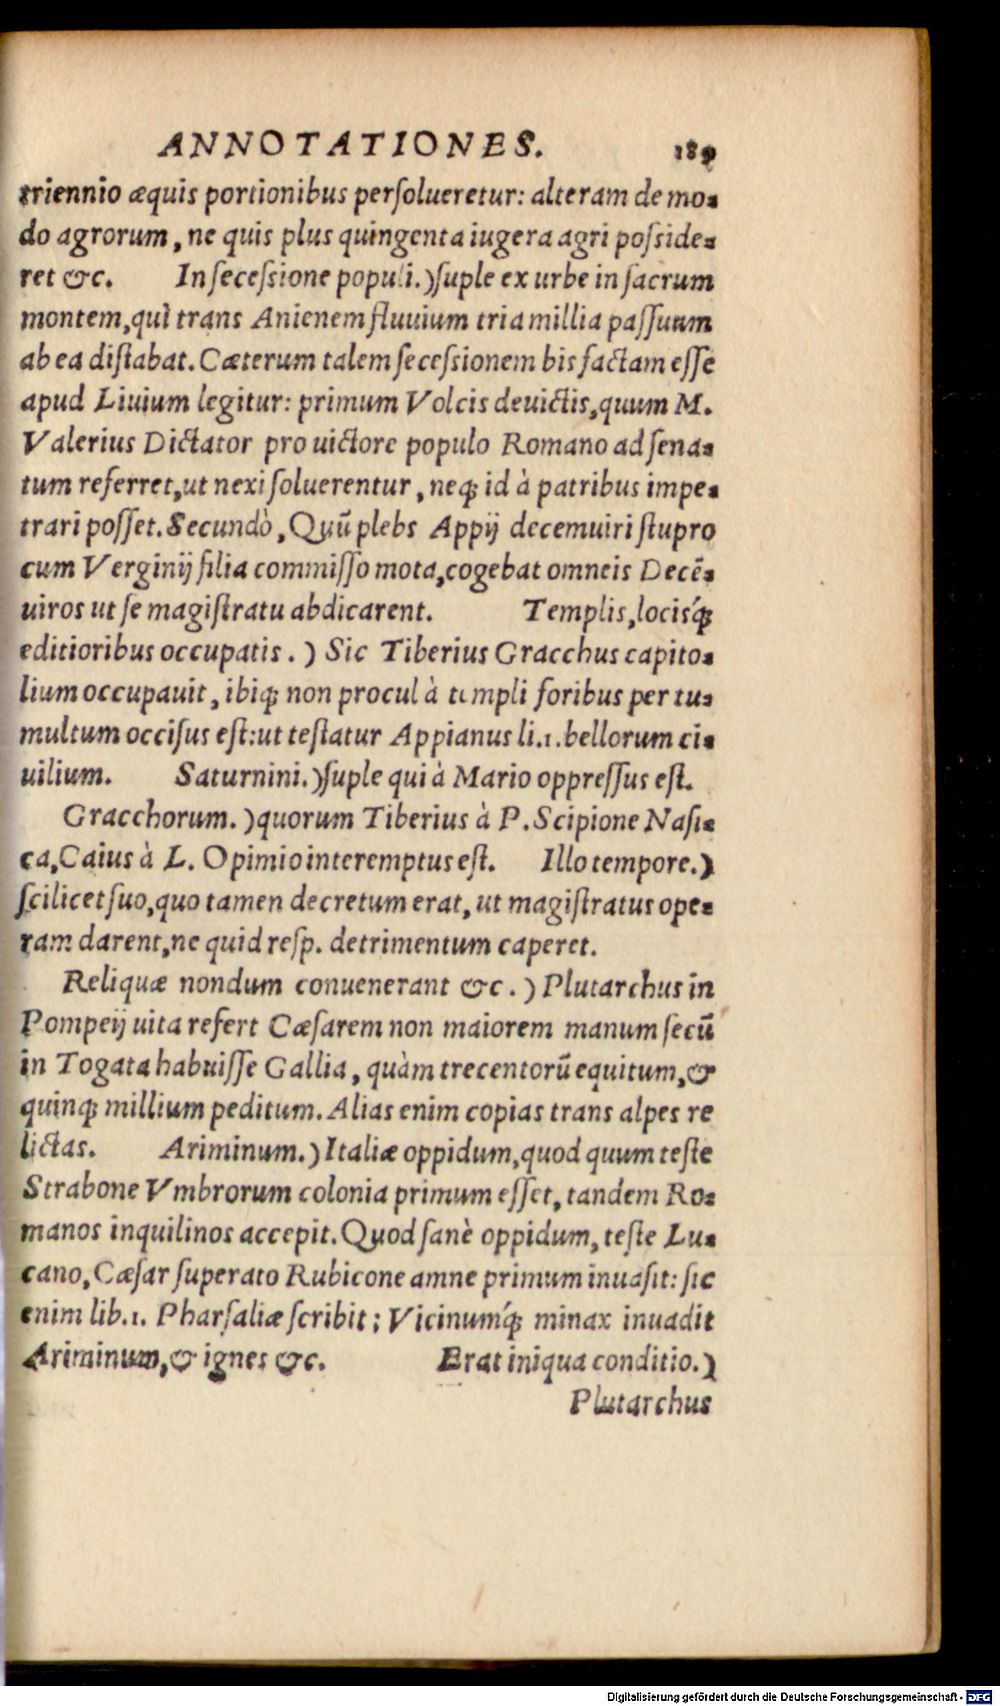 ANNOTATIONES. 189
triennio æquis portionibus persolueretur: alteram de mo-
do agrorum, ne quis plus quingenta iugera agri posside-
ret &c. In secessione populi.) suple ex urbe in sacrum
montem, quì trans Anienem fluuium tria millia passuum
ab ea distabat. Cæterum talem secessionem bis factam esse
apud Liuium legitur: primum Volcis deuictis, quum M.
Valerius Dictator pro uictore populo Romano ad sena-
tum referret, ut nexi soluerentur, neq; id à patribus impe-
trari posset. Secundò, Quũ plebs Appij decemuiri stupro
cum Verginij filia commisso mota, cogebat omneis Decẽ-
uiros ut se magistratu abdicarent. Templis, locisq́;
editioribus occupatis.) Sic Tiberius Gracchus capito-
lium occupauit, ibiq; non procul à templi foribus per tu-
multum occisus est: ut testatur Appianus li.1. bellorum ci-
uilium. Saturnini.) suple qui à Mario oppressus est.
Gracchorum.) quorum Tiberius à P. Scipione Nasi-
ca, Caius à L. Opimio interemptus est. Illo tempore.)
scilicet suo, quo tamen decretum erat, ut magistratus ope-
ram darent, ne quid resp. detrimentum caperet.
Reliquæ nondum conuenerant &c.) Plutarchus in
Pompeij uita refert Cæsarem non maiorem manum secũ
in Togata habuisse Gallia, quàm trecentorũ equitum, &
quinq; millium peditum. Alias enim copias trans alpes re
lictas. Ariminum.) Italiæ oppidum, quod quum teste
Strabone Vmbrorum colonia primum esset, tandem Ro-
manos inquilinos accepit. Quod sanè oppidum, teste Lu-
cano, Cæsar superato Rubicone amne primum inuasit: sic
enim lib.1. Pharsaliæ scribit; Vicinumq́; minax inuadit
Ariminum, & ignes &c. Erat iniqua conditio.)
Plutarchus
Digitalisierung gefördert durch die Deutsche Forschungsgemeinschaft - DFG